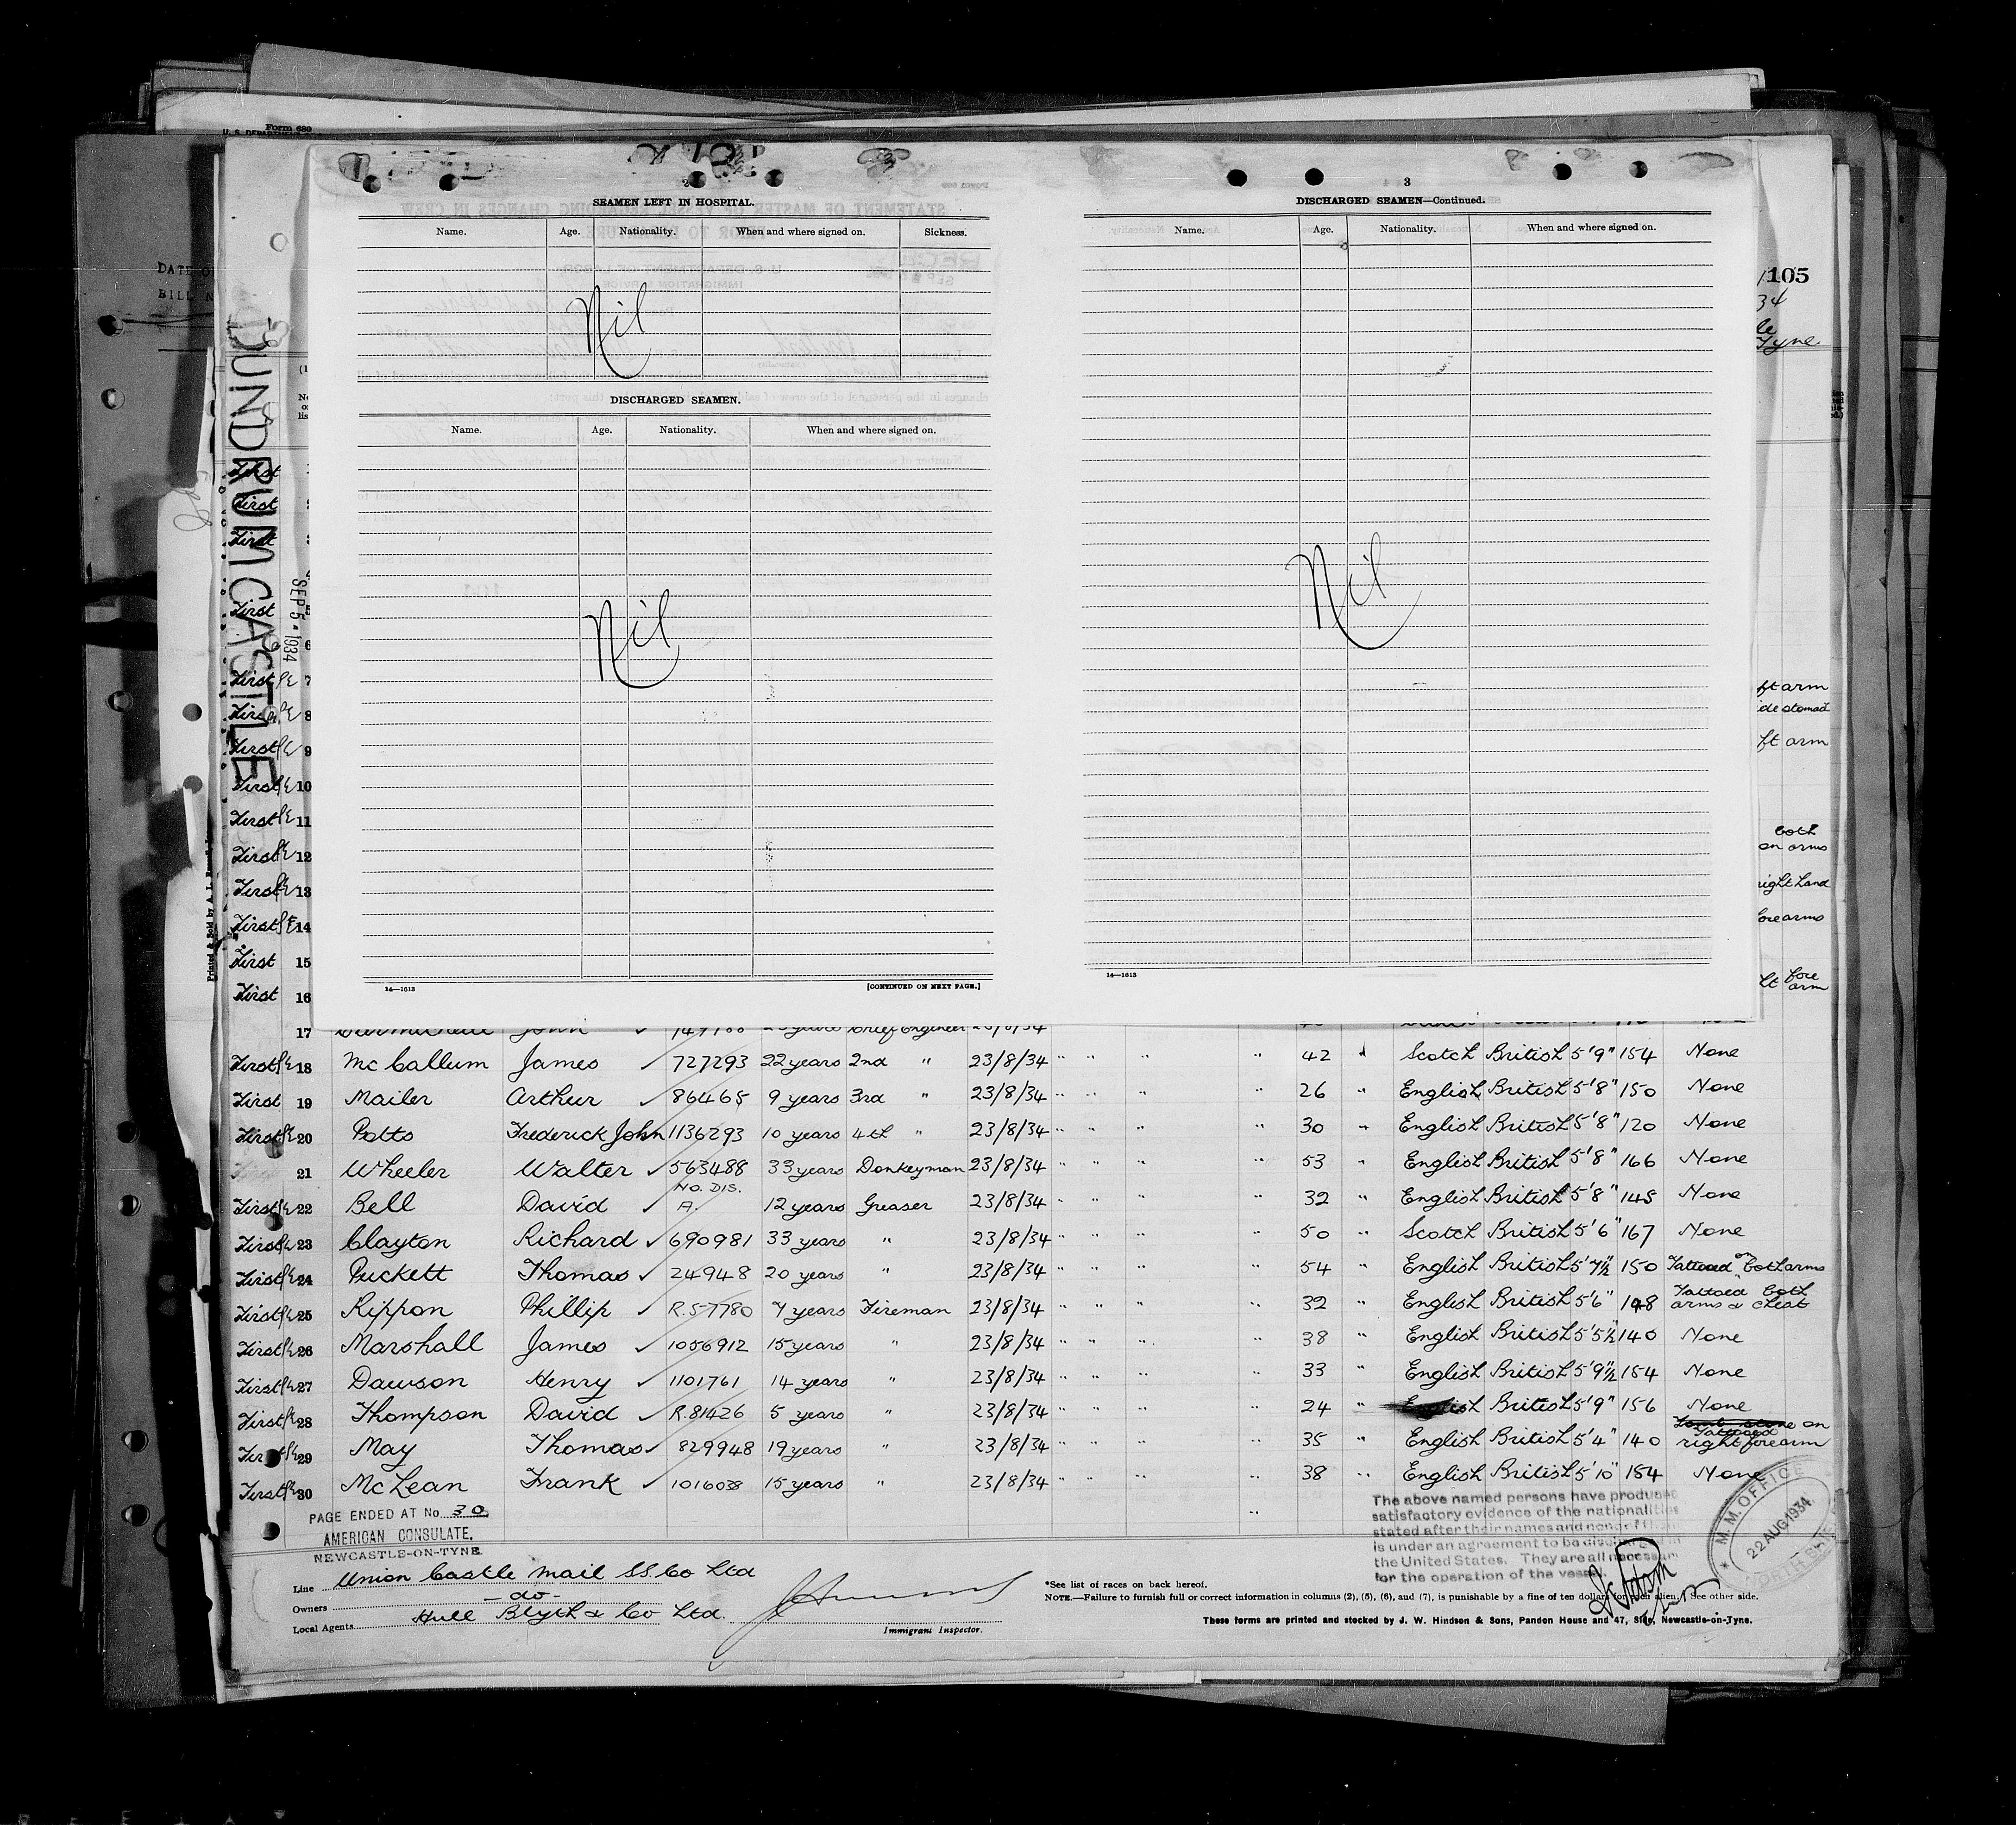 Form 680
DUNDRUM CASTLE
SEP 5 - 1934
2
SEAMEN LEFT IN HOSPITAL.
Name. Age. Nationality. When and where signed on. Sickness.
Nil
DISCHARGED SEAMEN.
Name. Age. Nationality. When and where signed on.
Nil
14—1613 [CONTINUED ON NEXT PAGE.]
3
DISCHARGED SEAMEN—Continued.
Name. Age. Nationality. When and where signed on.
Nil
14—1613
105
34
Tyne
First
First
First
First
First 7
First 8
First 9
First 10
First 11
First 12
First 13
First 14
First 15
First 16
ft arm
ft arm
both
on arms
right hand
forearms
fore
arm
17 John Chief Engineer 23/8/34
First 18 McCallum James 727293 22 years 2nd " 23/8/34 " " " " 42 " Scotch British 5'9" 154 None
First 19 Mailer Arthur 86465 9 years 3rd " 23/8/34 " " " " 26 " English British 5'8" 150 None
First 20 Potts Frederick John 1136293 10 years 4th " 23/8/34 " " " " 30 " English British 5'8" 120 None
21 Wheeler Walter 563488 33 years Donkeyman 23/8/34 " " " " 53 " English British 5'8" 166 None
NO. DIS.
First 22 Bell David A. 12 years Greaser 23/8/34 " " " " 32 " English British 5'8" 148 None
First 23 Clayton Richard 690981 33 years " 23/8/34 " " " " 50 " Scotch British 5'6" 167 None
First 24 Puckett Thomas 24948 20 years " 23/8/34 " " " " 54 " English British 5'7½ 150 Tattooed on both arms
First 25 Rippon Phillip R.57780 7 years Fireman 23/8/34 " " " " 32 " English British 5'6" 148 Tattoed both arms & chest
First 26 Marshall James 1056912 15 years " 23/8/34 " " " " 38 " English British 5'5½ 140 None
First 27 Dawson Henry 1101761 14 years " 23/8/34 " " " " 33 " English British 5'9½ 154 None
First 28 Thompson David R.81426 5 years " 23/8/34 " " " " 24 " English British 5'9" 156 None
First 29 May Thomas 829948 19 years " 23/8/34 " " " " 35 " English British 5'4" 140 Tattooed on right forearm
First 30 McLean Frank 1016038 15 years " 23/8/34 " " " " 38 " English British 5'10" 184 None
PAGE ENDED AT No. 30
AMERICAN CONSULATE,
NEWCASTLE-ON-TYNE
The above named persons have produced
satisfactory evidence of the nationalities
stated after their names and none of them
is under an agreement to be discharged in
the United States. They are all necessary
for the operation of the vessel.
M. M. OFFICE
22 AUG 1934
Line Union Castle Mail SS. Co Ltd
Owners - do -
Local Agents Hull Blyth & Co Ltd.
Immigrant Inspector.
*See list of races on back hereof.
NOTE.—Failure to furnish full or correct information in columns (2), (5), (6), and (7), is punishable by a fine of ten dollars for each alien. See other side.
These forms are printed and stocked by J. W. Hindson & Sons, Pandon House and 47, Side, Newcastle-on-Tyne.